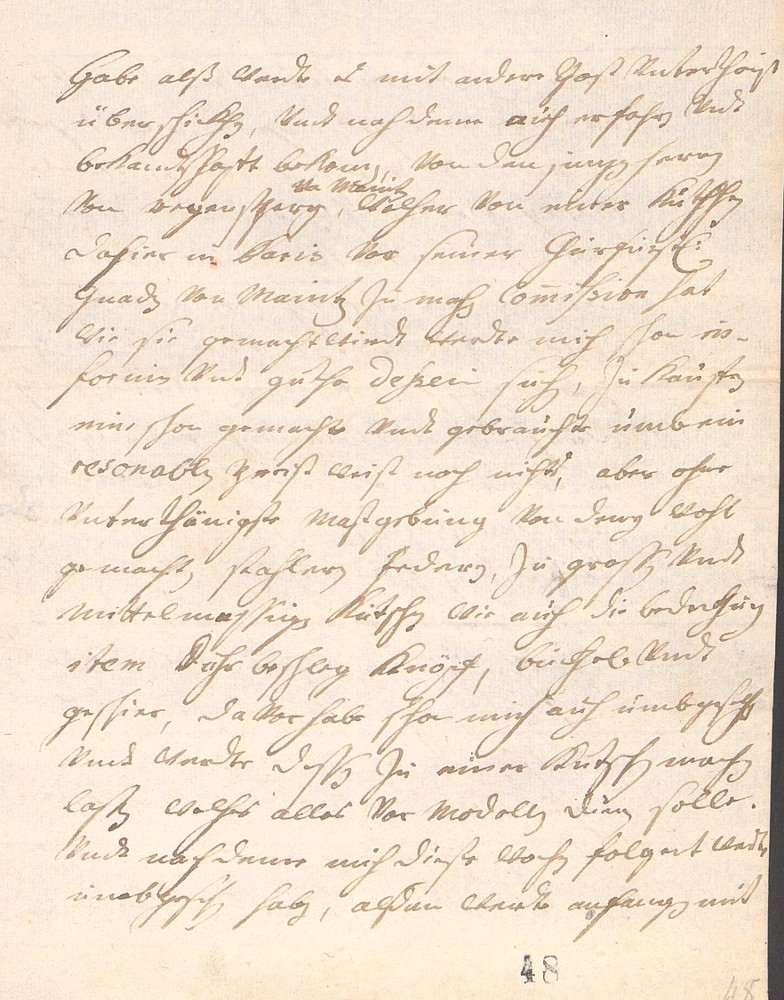 habe alß werde es mit andere Post Unterthänigst
überschickhen, Undt nach deme auch erfahren Undt
bekandtschafft bekomen, von den jungen herrn
von Maintz
Von regensperg, welcher von einer Kutschen
dahier in Paris Vor seiner Churfürstl:
Gnaden Von Maintz zu machen Commission hat
wie sie gemacht wirdt werde mich schon in-
formirn Undt guthe dessein suchen, zu kauffen
eine schon gemachte Undt gebrauchte umb ein
resonablen preiß weiß noch nicht, aber ohne
Unterthänigste Maßgebung Von denen wohl
gemachten stahlern federn, zu grossen Undt
Mittelmessigen Kutschen wie auch die bedeckung
item Dühr beschleg Knöpf, buckhel Undt
geschier, da Vor habe schon mich auch umbgesehen
Undt werde dessen zu einer Kutschen machen
lassen welches alles Vor Modellen dienen solle.
Undt nach deme mich diese wochen folgent werde
umbgesehen haben, alßdan werde anfangen mit
48
48